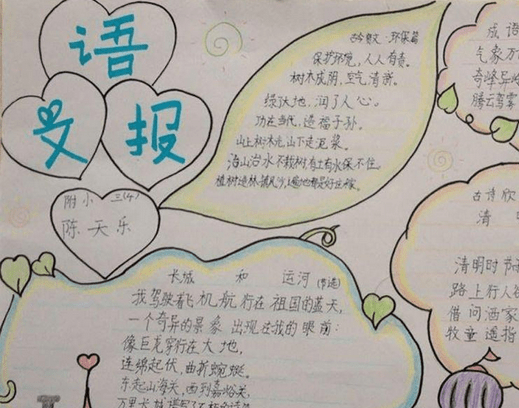 语
文
报
附小 三(4)
陈天乐
古今贤文·环保篇
保护环境,人人有责。
树木成荫,空气清新。
绿化大地,润了人心。
功在当代,造福子孙。
山上树木光,山下走泥浆。
治山治水不栽树,有土有水保不住。
植树造林,挡风沙,遍地都是好庄稼。
长城 和 运河(节选)
我驾驶着飞机航行在祖国的蓝天,
一个奇异的景象出现在我的眼前:
像巨龙穿行在大地,
连绵起伏,曲折蜿蜒。
东起山海关,西到嘉峪关,
万里长城
成语
气象万
奇峰异
腾云驾雾
古诗欣
清
清明时节
路上行人
借问酒家
牧童遥指